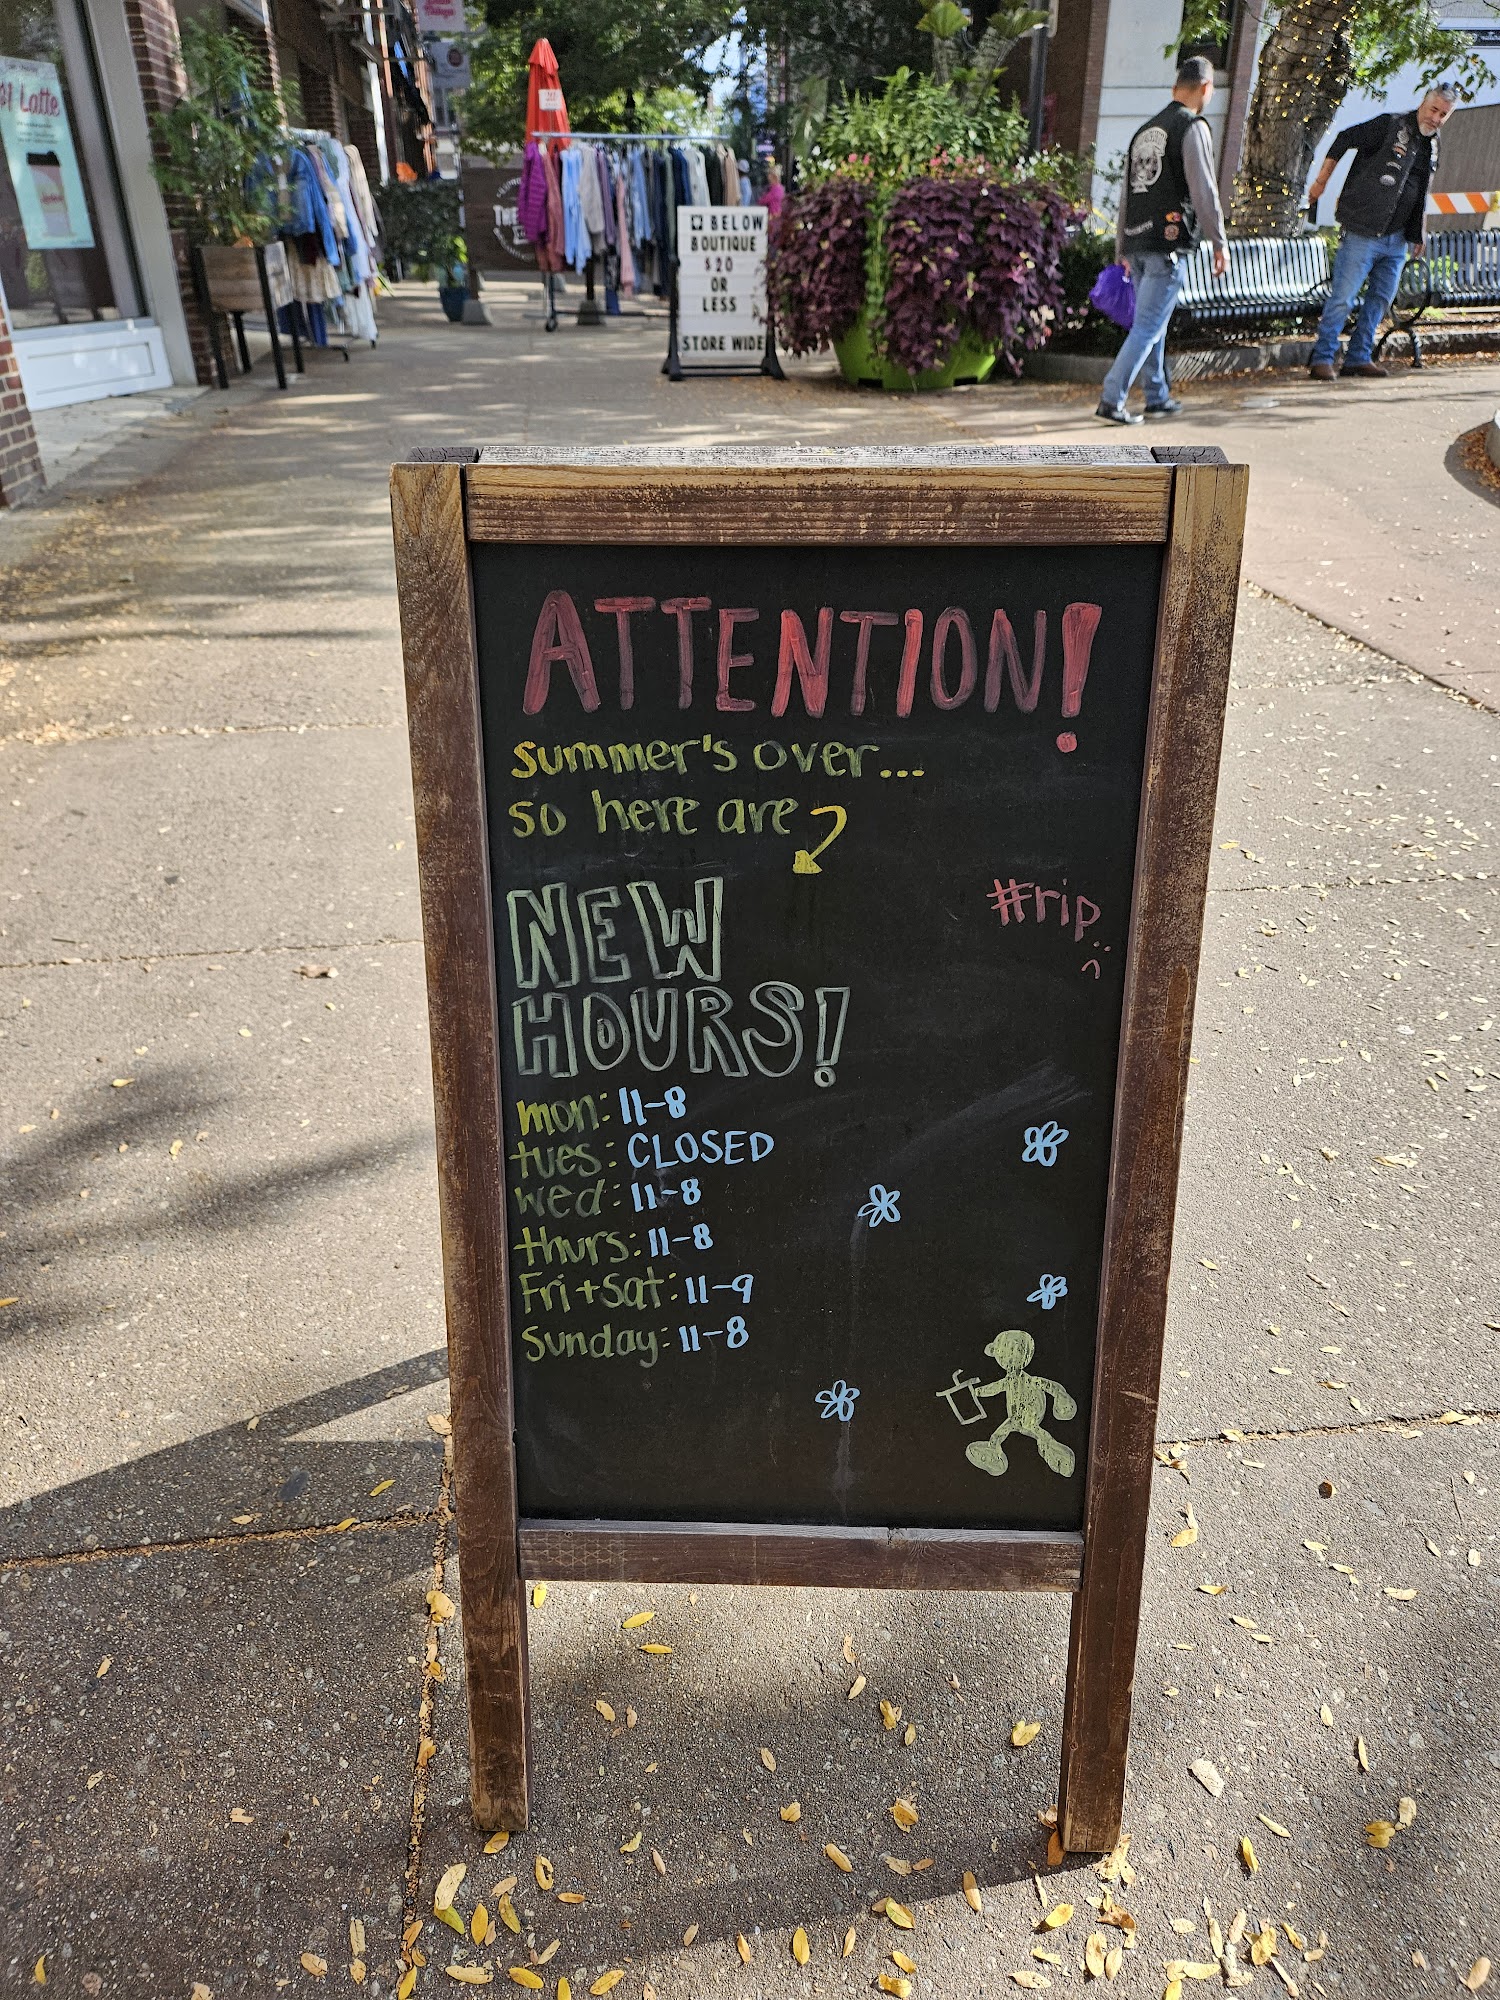 $1 Latte
THE
BELOW
BOUTIQUE
$20
OR
LESS
STORE WIDE
ATTENTION!
summer's over...
so here are
NEW
HOURS!
#rip
:(
mon: 11-8
tues: CLOSED
wed: 11-8
thurs: 11-8
Fri+Sat: 11-9
Sunday: 11-8